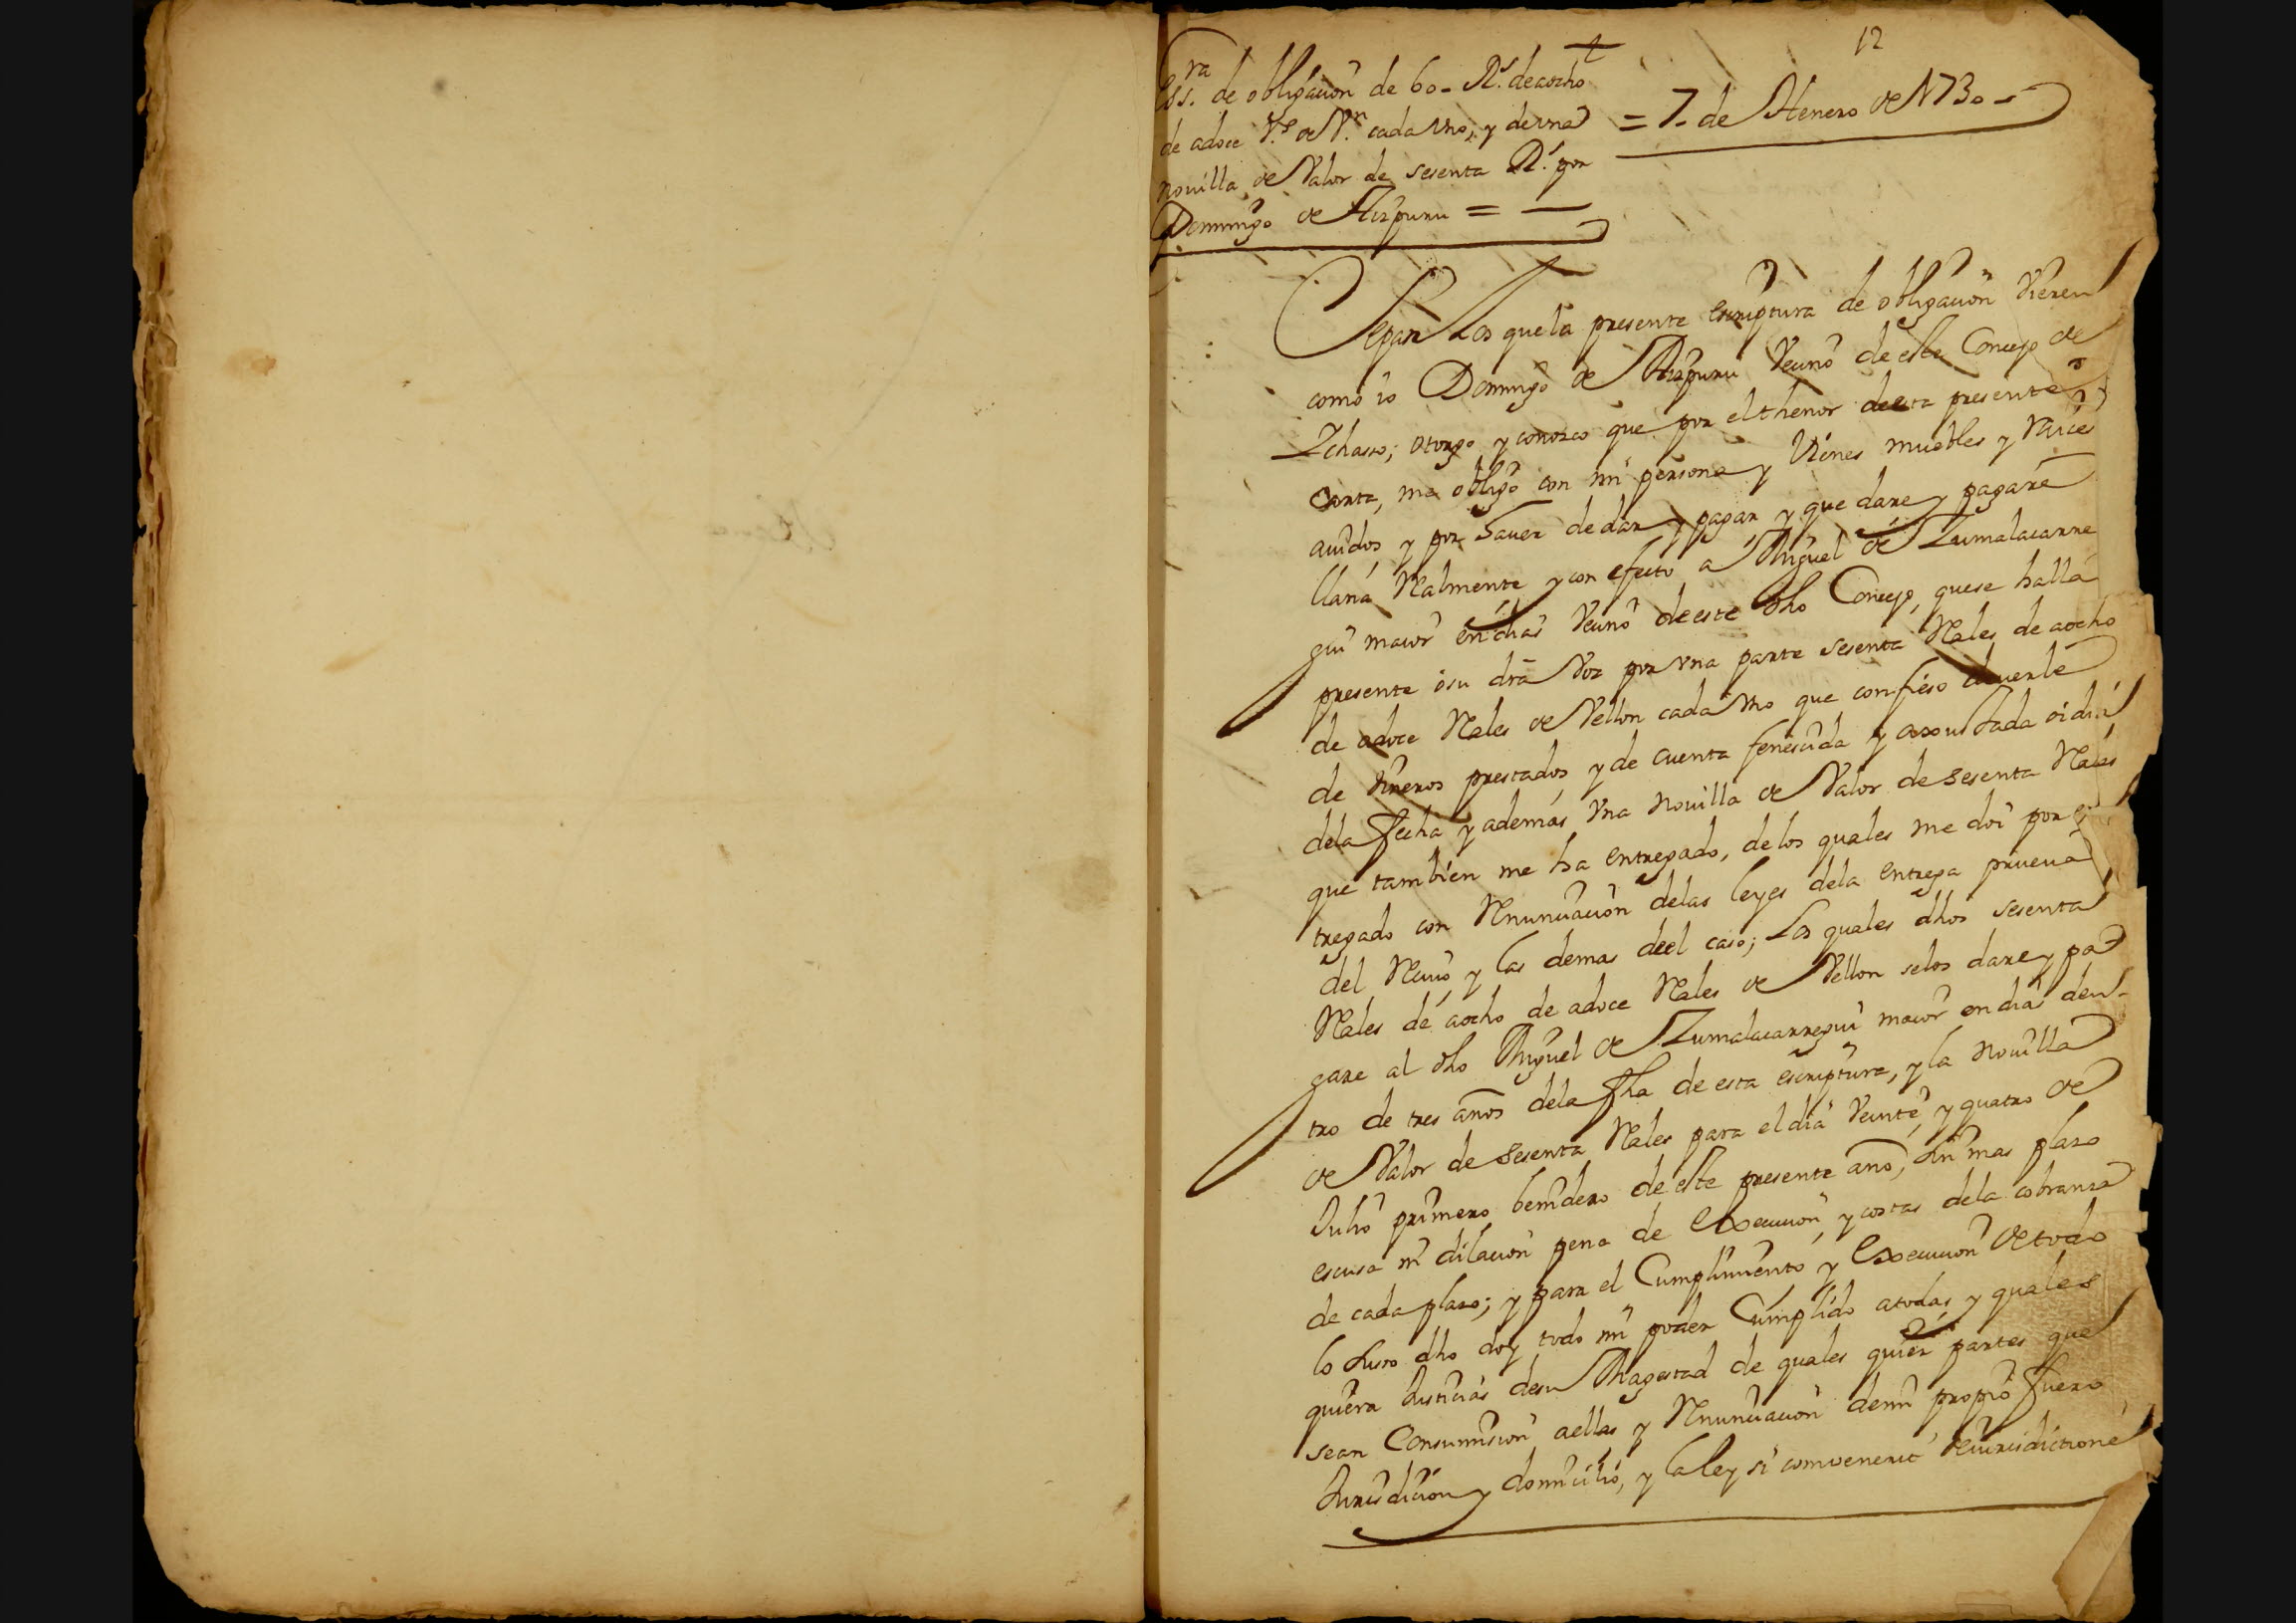 12
Ess.ra de obligacion de 60- R.s de aocho
de adoce R.s de V.n cada vno, y de vna
nouilla de Valor de sesenta R.s por
Domingo de Aizpuru = —
= 7- de Henero de 1730-
Sepan Los que la presente escriptura de obligacion Vieren
como io Domingo de Aizpuru Vecino de este Concejo de
Ichasso; otorgo y conozco que por el thenor de esta presente
Carta, me obligo con mi persona y Vienes muebles y raices
auidos, y por hauer de dar y pagar y que dare y pagaré
llana Realmente y con efecto a Miguel de Zumalacarre
gui maior en dias Vecino de este dho Concejo, que se halla
presente ó su dra Voz por vna parte sesenta Reales de aocho
de adoce Reales de Vellon cada vno que confieso deuerle
de dineros prestados, y de cuenta fenescida y axustada oi dia
de la fecha y ademas vna nouilla de Valor de sesenta Reales
que tambien me ha entregado, de los quales me doi por en
tregado con Renunciacion de las leyes de la entrega prueua
del Reciuo y las demas de el caso; Los quales dhos sesenta
Reales de aocho de adoce Reales de Vellon se los dare y pa
gare al dho Miguel de Zumalacarregui maior en dias den-
tro de tres años de la fha de esta escriptura, y la nouilla
de Valor de sesenta Reales para el dia Veinte y quatro de
Julio primero benidero de este presente año, sin mas plazo
escusa ni dilacion pena de Execucion, y costas de la cobranza
de cada plazo; y para el Cumplimiento y Execucion de todo
lo suso dho doy todo mi poder Cumplido a todas y quales
quiera Justicias de su Magestad de quales quier partes que
sean Con sumision a ellas y Renunciacion de mi propio fuero
Jurisdicion y domicilio, y la ley si convenerit de jurisdictione